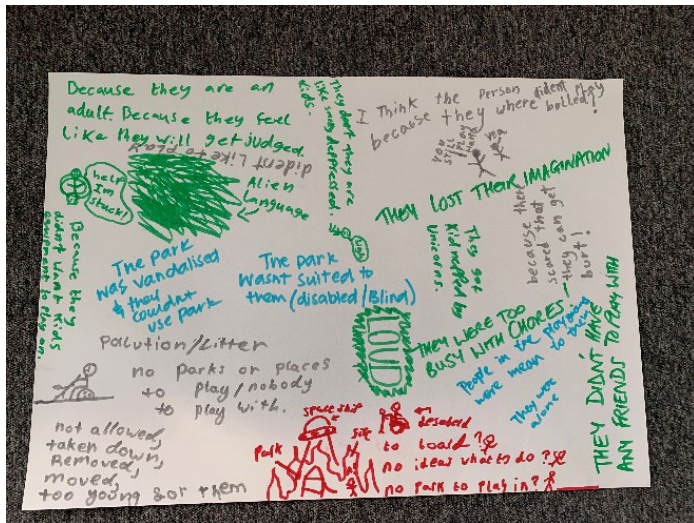 Because they are an
adult. Because they feel
like they will get judged.
dident like to play
help
Im
stuck!
Alien
Language
Because they
didn't want kids
equipment to play on.
They don't they are
kids.
I Think the Person dident play
because they where bulled!
YOU
STILL
PLAY
HAHA
THEY LOST THEIR IMAGINATION
They got
Kidnapped by
Unicorns.
because there
scared that
they can get
hurt!
The park
was vandalised
& they
couldnt
use park
The park
wasnt suited to
them (disabled/Blind)
LOUD
THEY WERE TOO
BUSY WITH CHORES
People in the playground
were mean to them
They were
alone
THEY DIDN'T HAVE
ANY FRIENDS TO PLAY WITH
Pollution/Litter
no parks or places
to play/nobody
to play with.
not allowed,
taken down,
Removed,
moved,
too young for them
space ship
Park
to board?
no ideas whats do?
no park to play in?